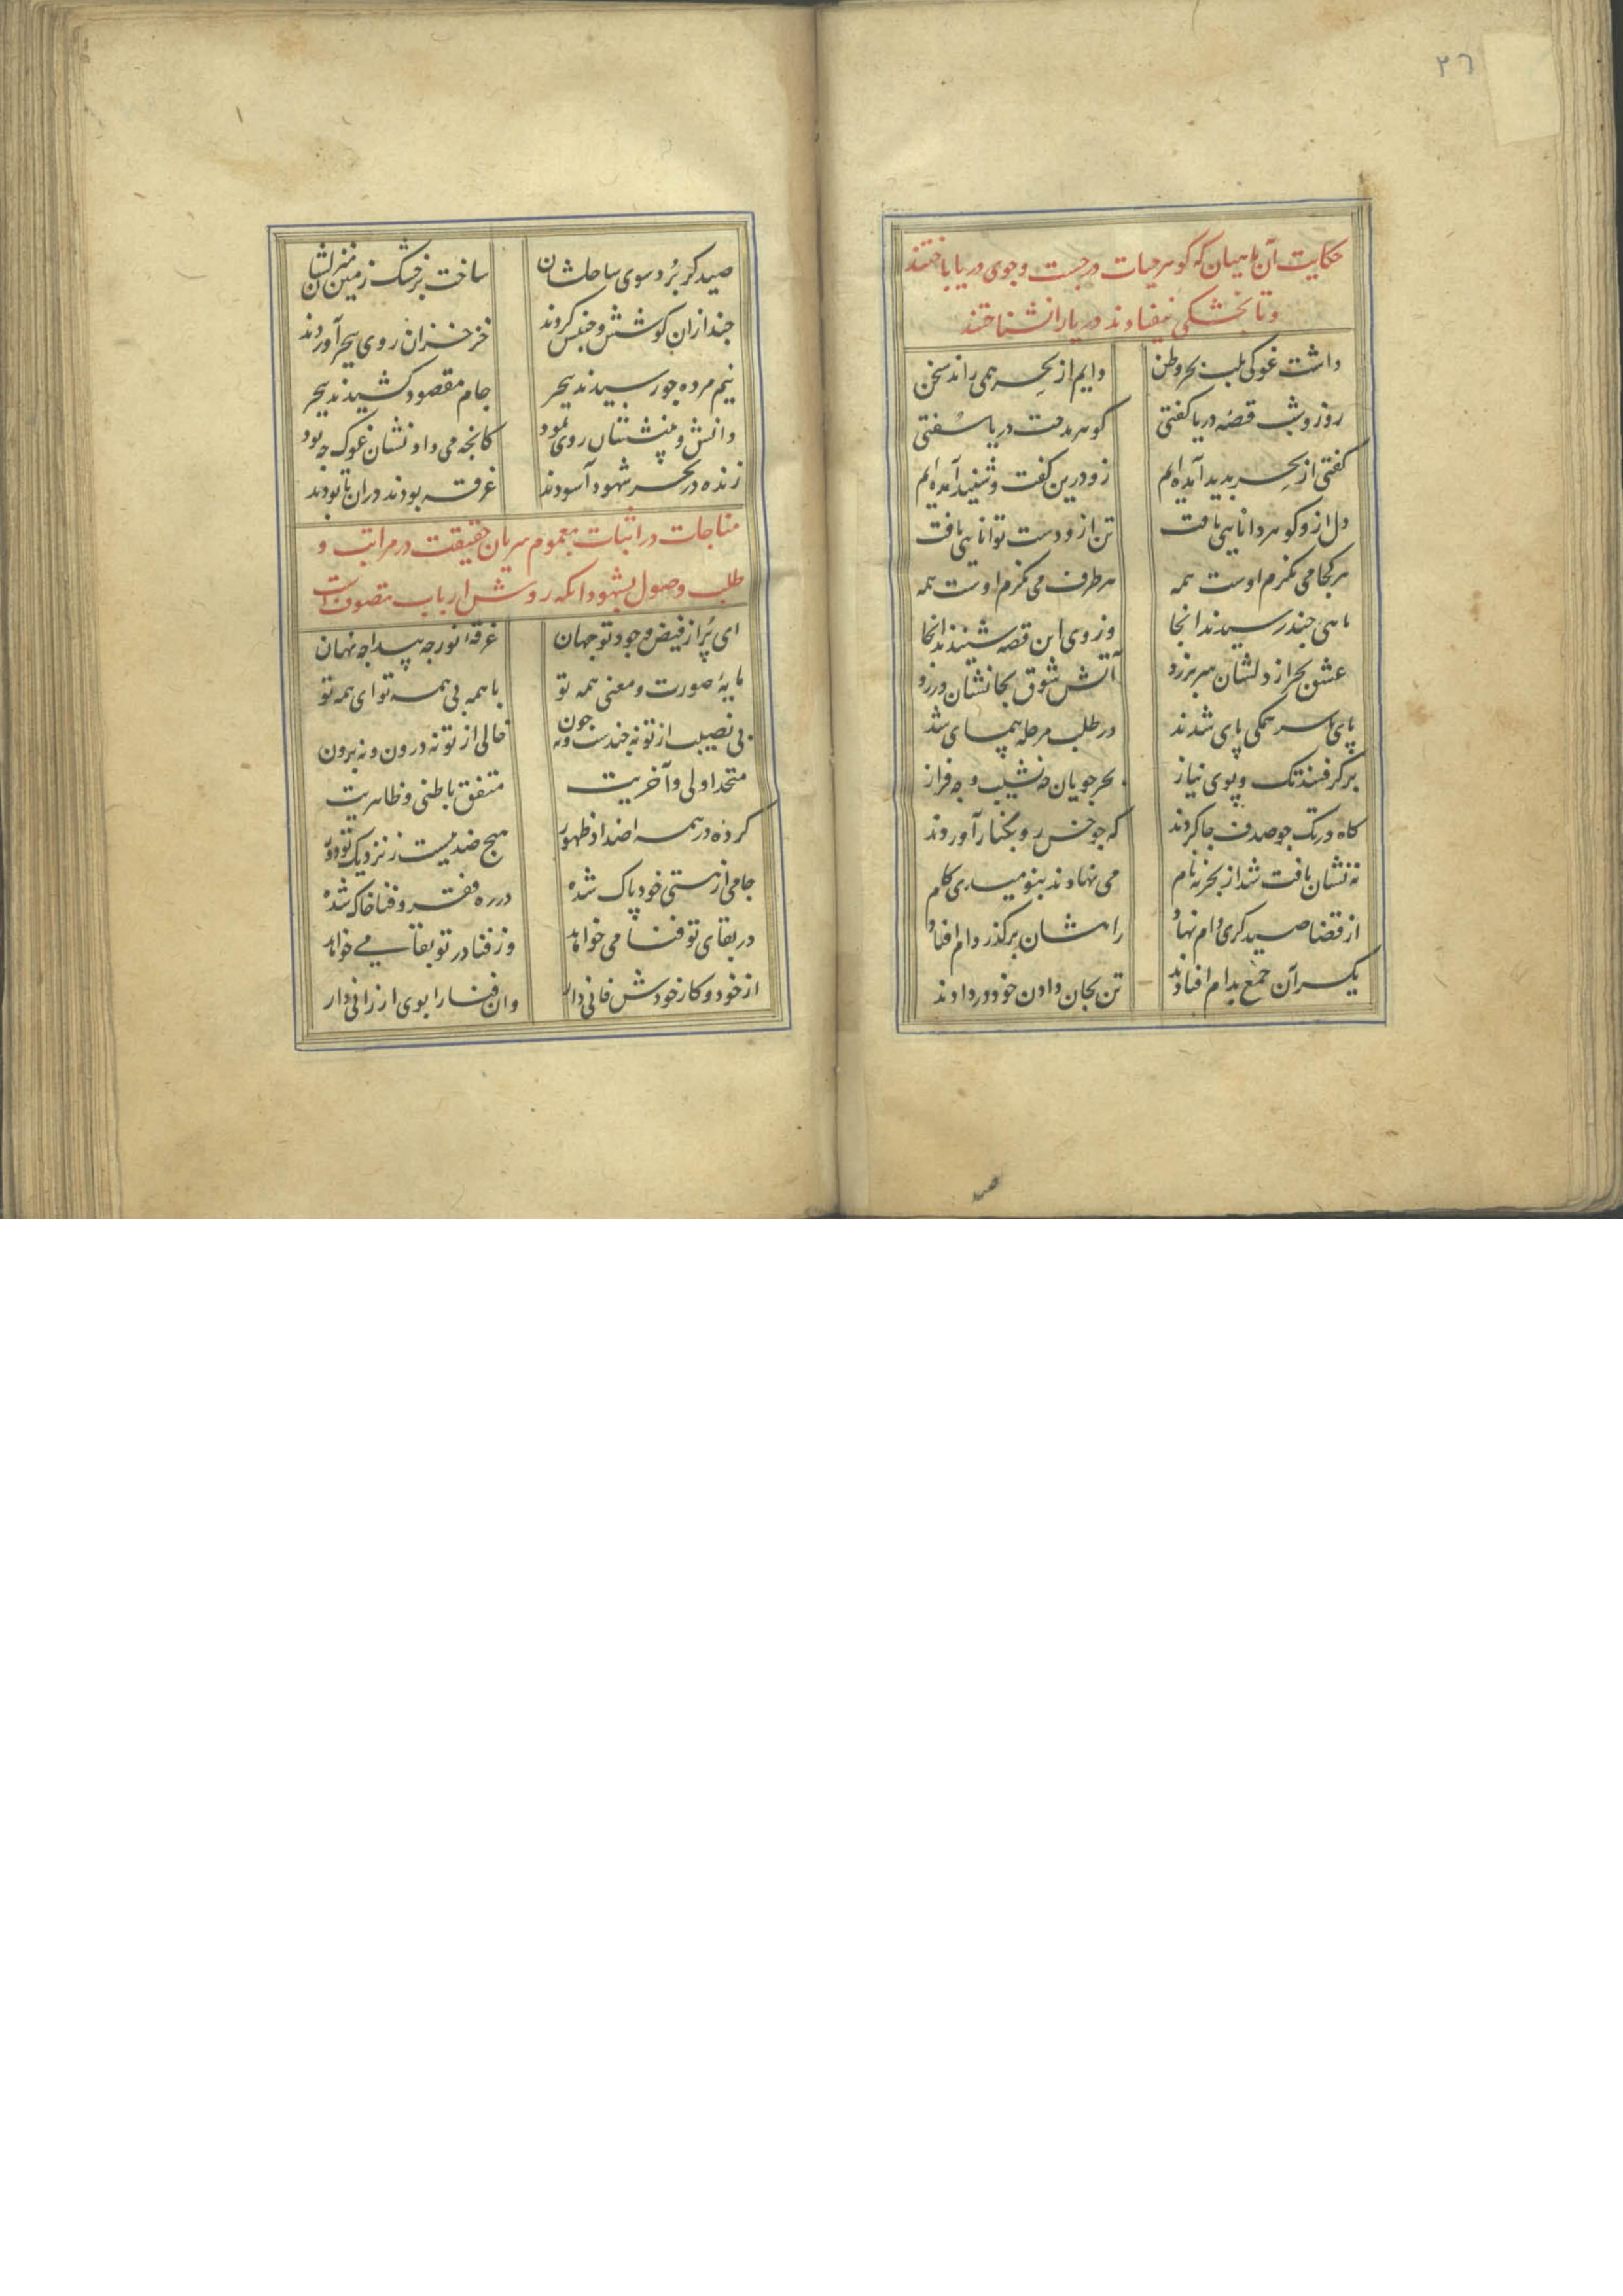 ٣٦
حکایت آن ماهیان که گوهر حیات در جست وجوی دریا باختند
و تا بخشکی نیفتادند دریا را نشناختند
داشت غوکی بلب بحر وطن دایم از بحر همی راند سخن
روز و شب قصه دریا گفتی گوهر مدحت دریا سفتی
گفتی از بحر بدید آمده ایم زو درین گفت و شنید آمده ایم
دل ازو گوهر دانایی یافت تن ازو دست توانایی یافت
هر کجا می نگرم اوست همه هر طرف می نگرم اوست همه
ماهیی جند رسیدند انجا وز وی این قصه شنیدند انجا
عشق بحر از دلشان سر بر زد آتش شوق بجانشان در زد
پای تا سر همگی پای شدند در طلب مرحله پیمای شدند
بر گرفتند تک و پوی نیاز بحر جویان جه نشیب و جه فراز
گاه در تک جو صدف جا کردند گه جو خس رو بکنار آوردند
نه نشان یافت شد از بحر نه نام می نهادند بنومیدی گام
از قضا صیدگری دام نهاد راهشان بر گذر دام افتاد
یکسر آن جمع بدام افتادند تن بجان دادن خود در دادند
صیدگر برد سوی ساحلشان ساخت بر خشک زمین منزلشان
جند ازان کوشش و جنبش کردند خزخزان روی ببحر آوردند
نیم مرده جو رسیدند ببحر جام مقصود کشیدند ببحر
دانش و بینششان روی نمود کانجه می داد نشان غوک جه بود
زنده در بحر شهود آسودند غرقه بودند دران تا بودند
مناجات در اثبات عموم سریان حقیقت در مراتب و
طلب وصول بشهود آنکه روش ارباب تصوف است
ای پر از فیض وجود تو جهان غرقه نور جه پیدا جه نهان
مایه صورت و معنی همه تو با همه بی همه تو ای همه تو
بی نصیب از تو نه جندست و نه جون خالی از تو نه درون و نه برون
متحد اولی و آخریت متفق باطنی و ظاهریت
کرده در همه اضداد ظهور هیج ضد نیست ز نزدیک تو دور
جامی از هستی خود پاک شده در ره فقر و فنا خاک شده
در بقای تو فنا می خواهد وز فنا در تو بقا می خواهد
از خود و کار خودش فانی دار وان فنا را بوی ارزانی دار
صید